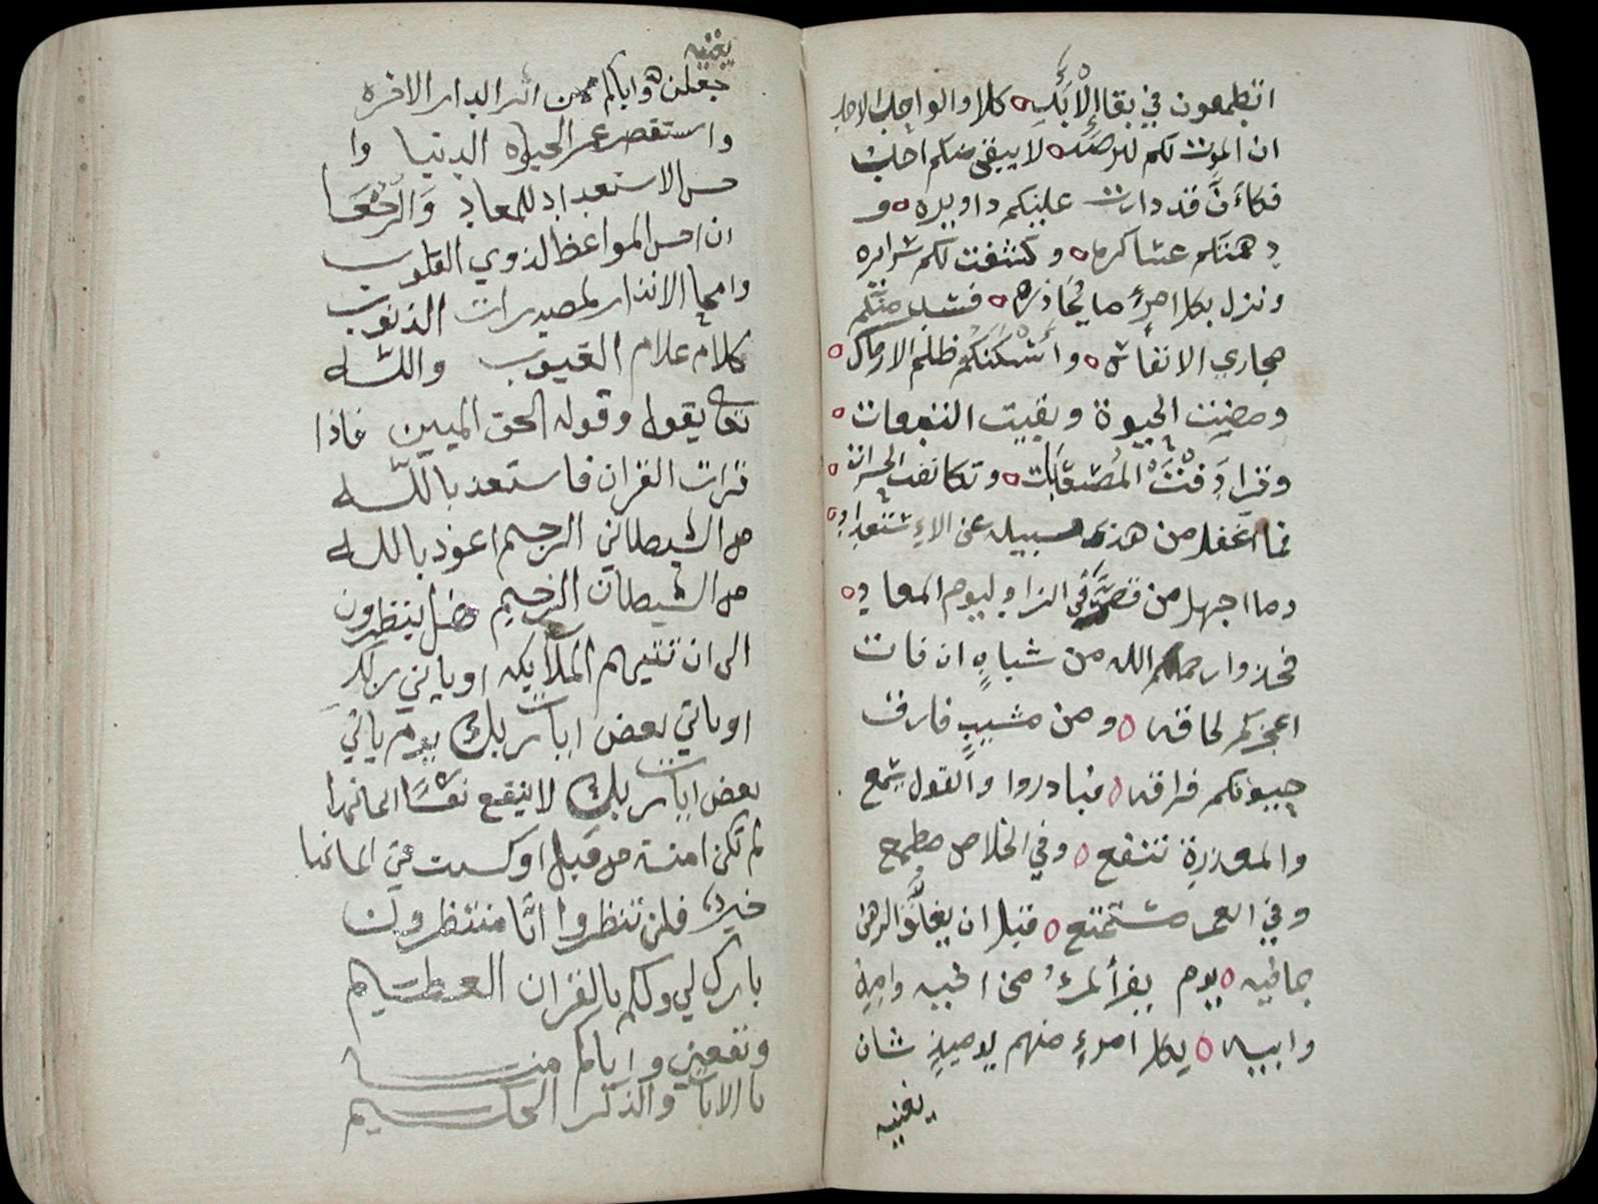 اتطمعون في بقاء الأبد كلا والواحد الاحد
ان الموت لكم لبرصد لا يبقى منكم احد
فكأن قد دارت عليكم دوايره و
دهمتكم عساكره وكشفت لكم سرايره
ونزل بكل امرئ ما يُحاذره فسد منكم
مجاري الانفاس واسكنكم ظلم الارماس
ومضت الحيوة وبقيت التبعات
وترادفت المصيبات وتكاثفت الحسرات
فما اغفل من هذه سبيله عن الاستعداد
وما اجهل من قصر في الزاد ليوم المعاد
فخذوا رحمكم الله من شباب ان فات
اعجزكم لحاقه ومن مشيب فارق
حبيوتكم فراقه فبادروا والقول يسمع
والمعذرة تنفع وفي الخلاص مطمح
وفي العمر مستمتع قبل ان يغلق الرهن
بما فيه يوم يفر المرء من اخيه وامه
وابيه لكل امرءٍ منهم يوميذٍ شان
يغنيه
يغنيه
جعلن واياكم ممن اثر الدار الاخره
واستقصر عمر الحياه الدنيا وا
حسن الاستعداد للمعاد وَالرُّجْعَا
ان احسن المواعظ لذوي القلوب
وامحا الانذار لمصدرات الذنوب
كلام علام الغيوب والله
تعالى يقول وقوله الحق المبين فاذا
قرات القران فاستعذ بالله
من الشيطان الرجيم اعوذ بالله
من الشيطان الرجيم هل ينظرون
الى ان تتيهم الملايكه او ياتي ربك
او ياتي بعض ايات ربك يوم ياتي
بعض ايات ربك لا ينفع نفسًا ايمانها
لم تكن امنت من قبل او كسبت في ايمانها
خيرا قلن تنظروا انا منتظرون
بارك لي ولكم بالقران العظيم
ونفعني واياكم منه
بالايات والذكر الحكيم